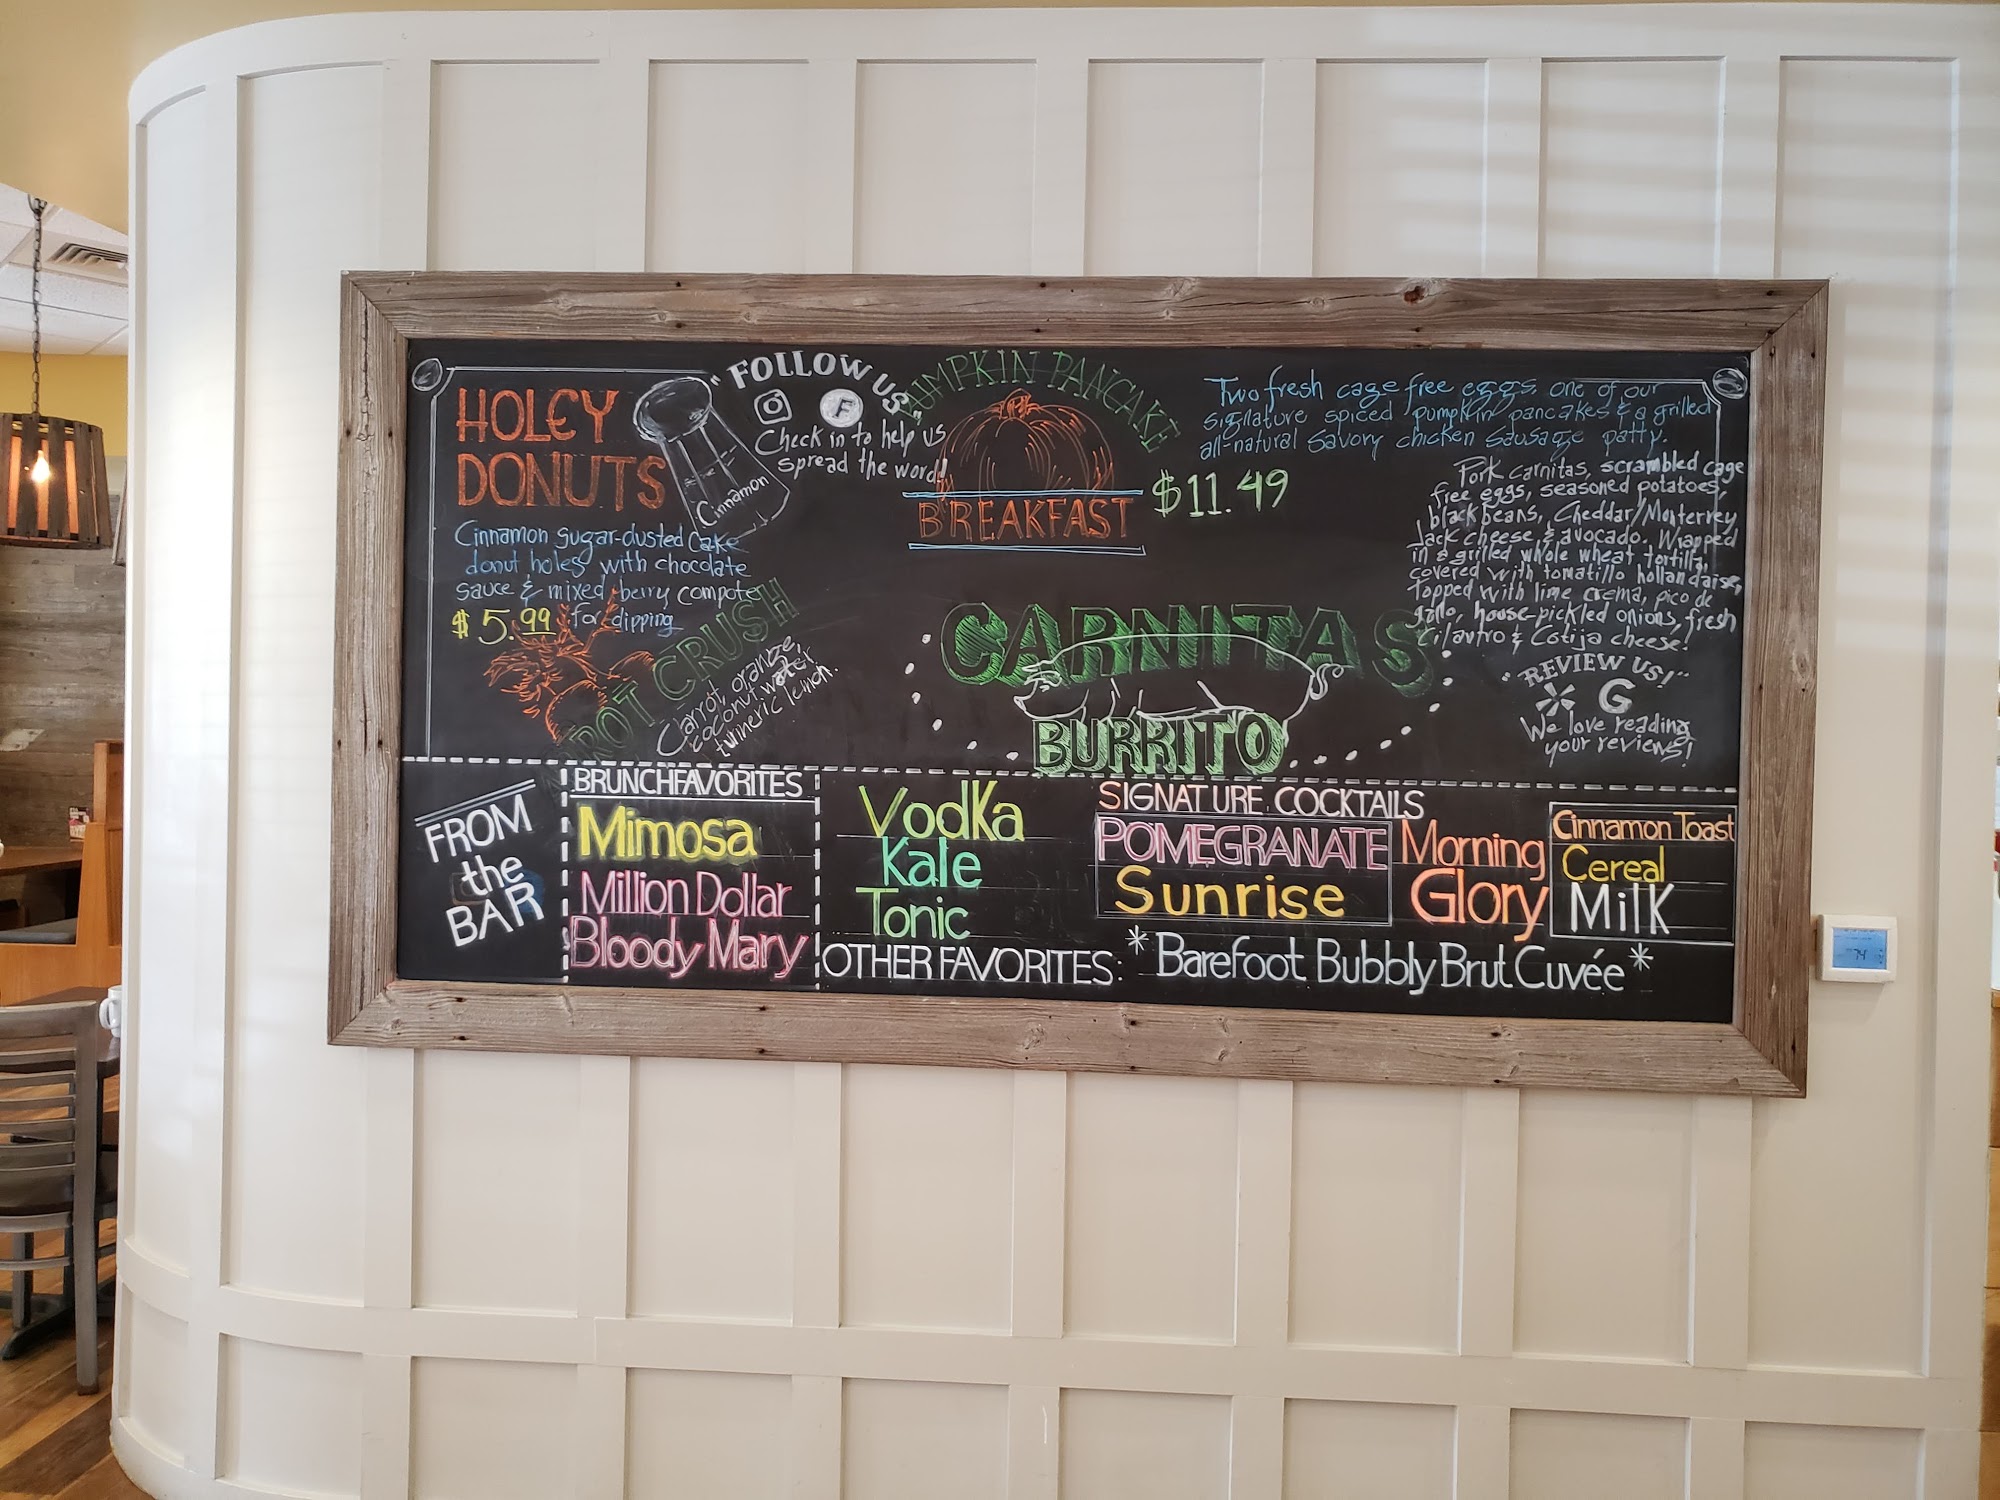 HOLEY
DONUTS
Cinnamon
Cinnamon sugar-dusted cake
donut holes with chocolate
sauce & mixed berry compote
$5.99 for dipping
"FOLLOW US"
F
Check in to help us
spread the word!
ROT CRUSH
Carrot, orange,
coconut water,
turmeric lemon.
UMPKIN PANCAKE
BREAKFAST
$11.49
Two fresh cage free eggs, one of our
signature spiced pumpkin pancakes & a grilled
all-natural savory chicken sausage patty.
CARNITAS
BURRITO
Pork carnitas, scrambled cage
free eggs, seasoned potatoes,
black beans, Cheddar/Monterrey
Jack cheese & avocado. Wrapped
in a grilled whole wheat tortilla,
covered with tomatillo hollandaise,
topped with lime crema, pico de
gallo, house-pickled onions, fresh
cilantro & Cotija cheese.
"REVIEW US!"
G
We love reading
your reviews!
FROM
the
BAR
BRUNCH FAVORITES
Mimosa
Million Dollar
Bloody Mary
Vodka
Kale
Tonic
SIGNATURE COCKTAILS
POMEGRANATE
Sunrise
Morning
Glory
Cinnamon Toast
Cereal
Milk
OTHER FAVORITES: *Barefoot Bubbly Brut Cuvée*
74